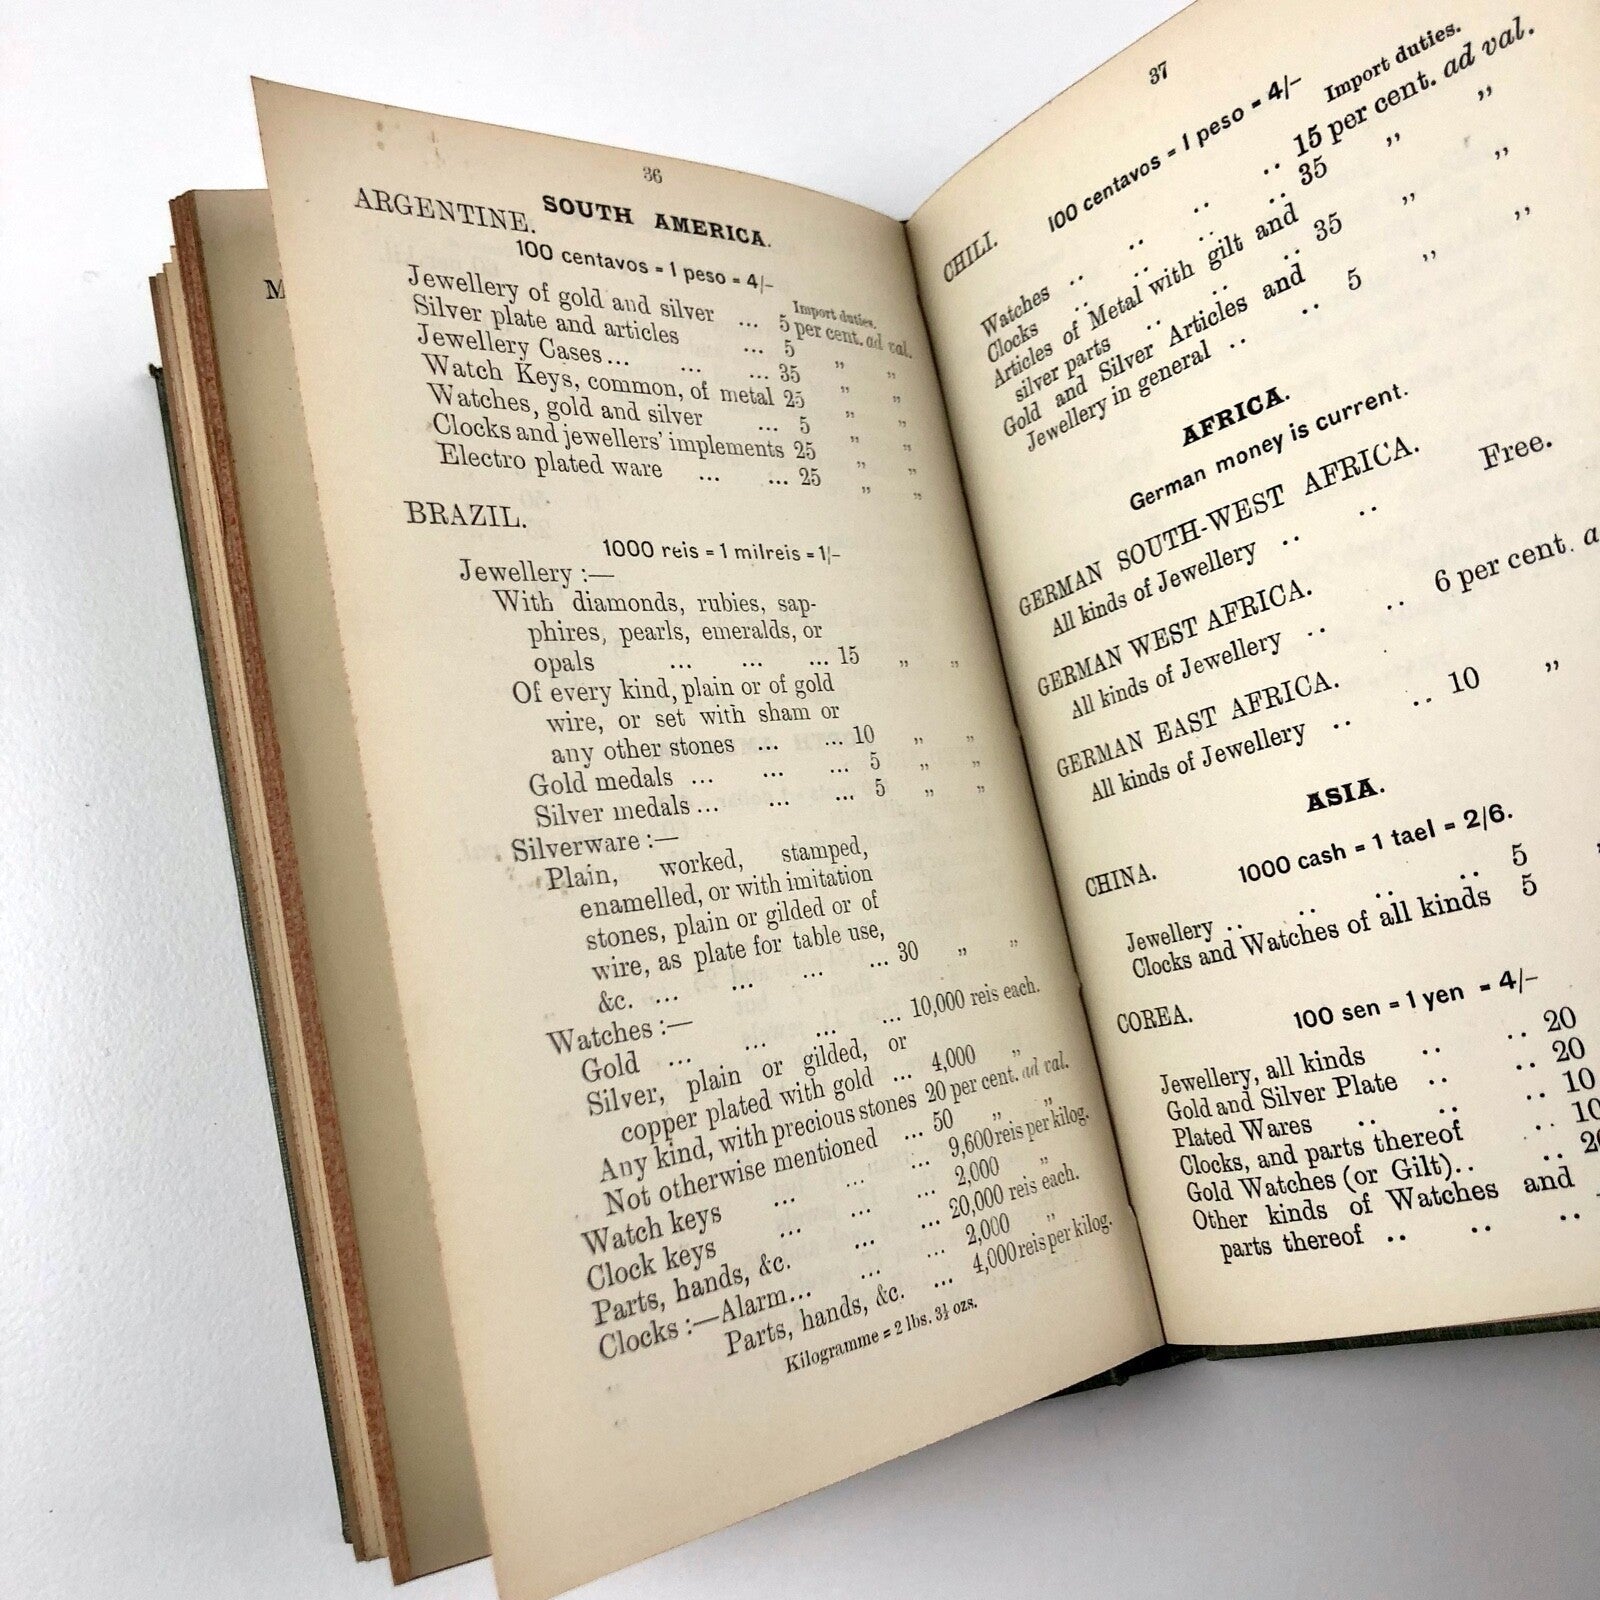 M
36
SOUTH AMERICA.
ARGENTINE.
100 centavos = 1 peso = 4/-
Import duties.
Jewellery of gold and silver ... 5 per cent. ad val.
Silver plate and articles ... 5 " "
Jewellery Cases... ... ... 35 " "
Watch Keys, common, of metal 25 " "
Watches, gold and silver ... 5 " "
Clocks and jewellers' implements 25 " "
Electro plated ware ... ... 25 " "
BRAZIL.
1000 reis = 1 milreis = 1/-
Jewellery :—
With diamonds, rubies, sap-
phires, pearls, emeralds, or
opals ... ... ... 15 " "
Of every kind, plain or of gold
wire, or set with sham or
any other stones ... ... 10 " "
Gold medals ... ... ... 5 " "
Silver medals ... ... ... 5 " "
Silverware :—
Plain, worked, stamped,
enamelled, or with imitation
stones, plain or gilded or of
wire, as plate for table use,
&c. ... ... ... ... 30 " "
Watches :—
Gold ... ... ... ... 10,000 reis each.
Silver, plain or gilded, or
copper plated with gold ... 4,000 "
Any kind, with precious stones 20 per cent. ad val.
Not otherwise mentioned ... 50 " "
Watch keys ... ... ... 9,600 reis per kilog.
Clock keys ... ... ... 2,000 "
Parts, hands, &c. ... ... 20,000 reis each.
Clocks :—Alarm... ... ... 2,000 "
Parts, hands, &c. ... 4,000 reis per kilog.
Kilogramme = 2 lbs. 3¼ ozs.
37
CHILI. 100 centavos = 1 peso = 4/-
Import duties.
Watches .. .. .. .. 15 per cent. ad val.
Clocks .. .. .. .. 35 " "
Articles of Metal with gilt and
silver parts .. .. .. 35 " "
Gold and Silver Articles and
Jewellery in general .. .. 5 " "
AFRICA.
German money is current.
GERMAN SOUTH-WEST AFRICA.
All kinds of Jewellery .. .. Free.
GERMAN WEST AFRICA.
All kinds of Jewellery .. .. 6 per cent. a
GERMAN EAST AFRICA.
All kinds of Jewellery .. .. 10 "
ASIA.
CHINA. 1000 cash = 1 tael = 2/6.
Jewellery .. .. .. .. 5 "
Clocks and Watches of all kinds 5
COREA. 100 sen = 1 yen = 4/-
Jewellery, all kinds .. .. 20
Gold and Silver Plate .. .. 20
Plated Wares .. .. .. 10
Clocks, and parts thereof .. 10
Gold Watches (or Gilt).. .. 20
Other kinds of Watches and
parts thereof .. .. ..